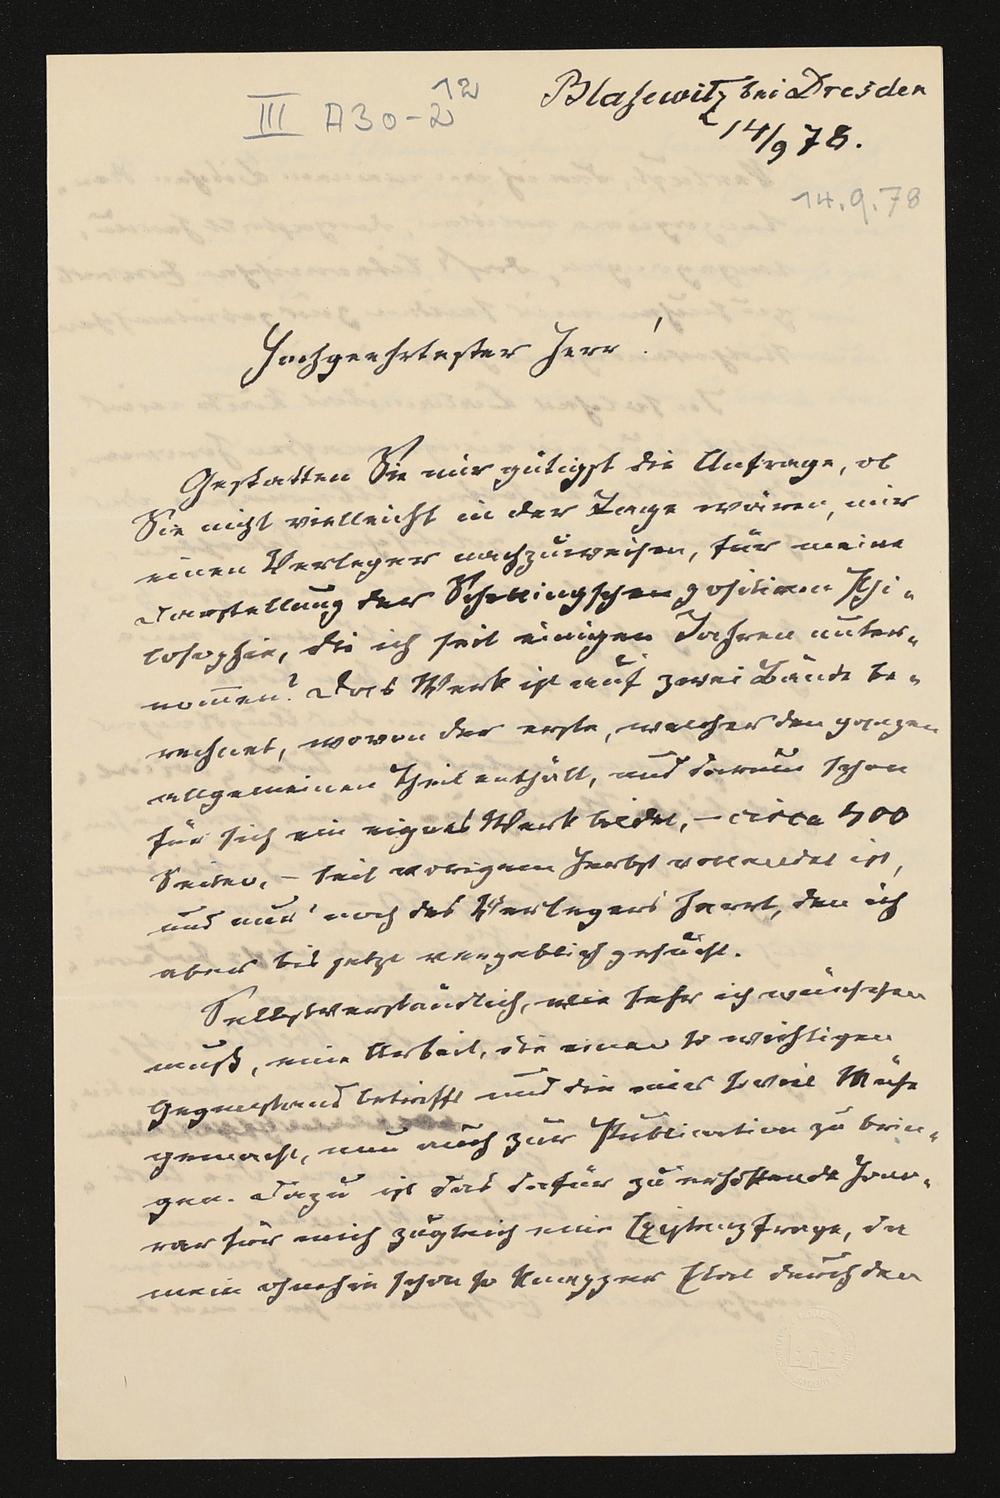 III A30-2 12
Blasewitz bei Dresden
14/9 78.
14.9.78
Hochgeehrtester Herr!
Gestatten Sie mir gütigst die Anfrage, ob
Sie nicht vielleicht in der Lage wären, mir
einen Verleger nachzuweisen, für meine
Darstellung der Schellingschen positiven Phi-
losophie, die ich seit einigen Jahren unter-
nom̄en? Das Werk ist auf zwei Bände be-
rechnet, wovon der erste, welcher den ganzen
allgemeinen Theil enthält, und darum schon
für sich ein eignes Werk bildet, – circa 400
Seiten, – seit vorigem Herbst vollendet ist,
und nur noch des Verlegers harrt, den ich
aber bis jetzt vergeblich gesucht.
Selbstverständlich, wie sehr ich wünschen
muß, eine Arbeit, die einen so wichtigen
Gegenstand betrifft und die mir soviel Mühe
gemacht, nun auch zur Publication zu brin-
gen. Dazu ist das dafür zu erhoffende Hono-
rar für mich zugleich eine Existenzfrage, da
mein ohnehin schon so knapper Etat durch den